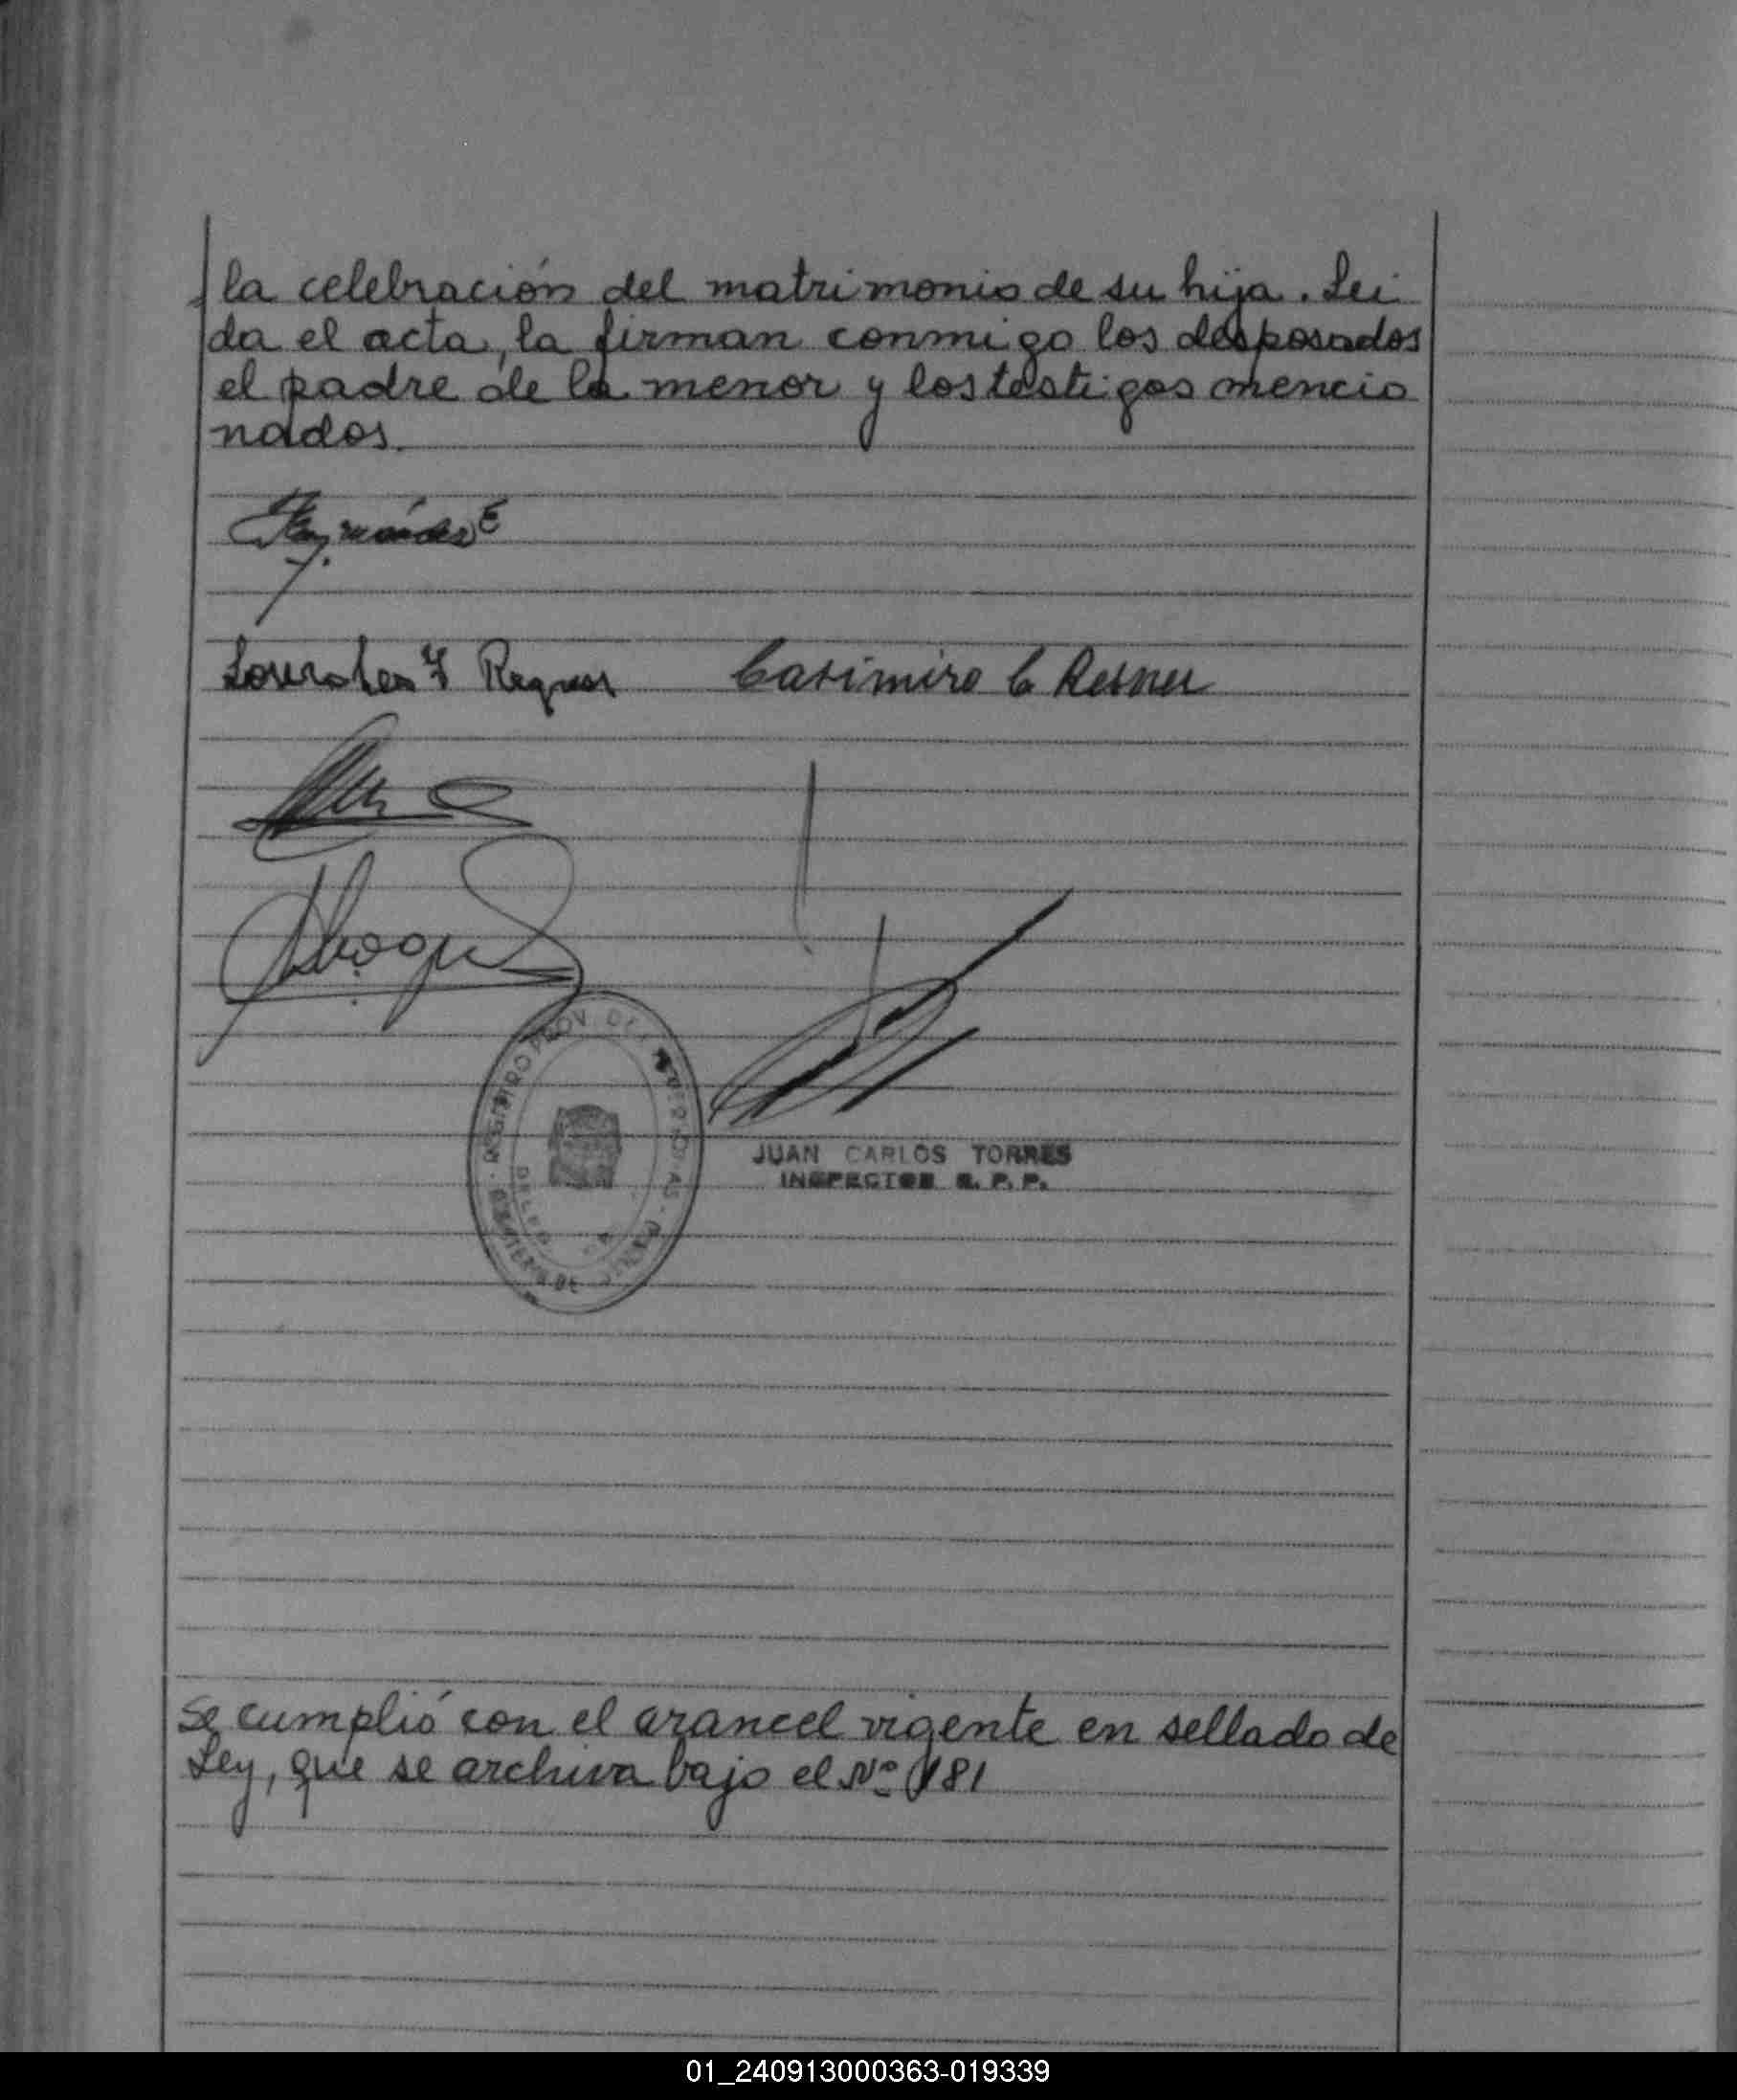 la celebración del matrimonio de su hija. Lei
da el acta, la firman conmigo los desposados
el padre de la menor y los testigos mencio
nados.
Casimiro C Resner
REGISTRO PROV. DE LAS PERSONAS
JUAN CARLOS TORRES
INSPECTOR R. P. P.
Se cumplió con el arancel vigente en sellado de
Ley, que se archiva bajo el Nº 181
01_240913000363-019339